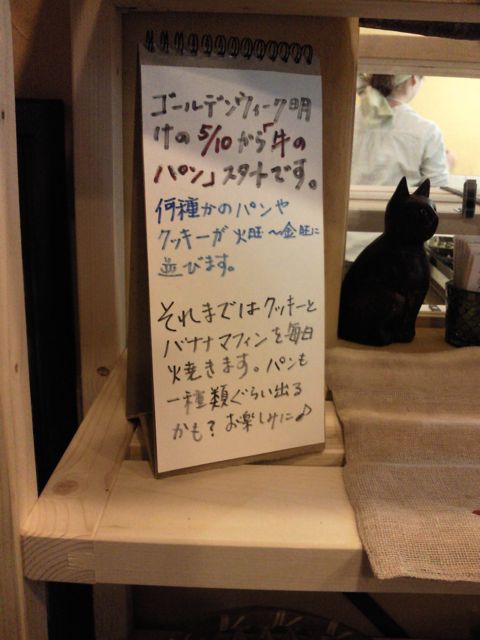 ゴールデンウィーク明
けの5/10から「牛の
パン」スタートです。
何種かのパンや
クッキーが火旺〜金旺に
並びます。
それまではクッキーと
バナナマフィンを毎日
焼きます。パンも
一種類ぐらい出る
かも？お楽しみに♪